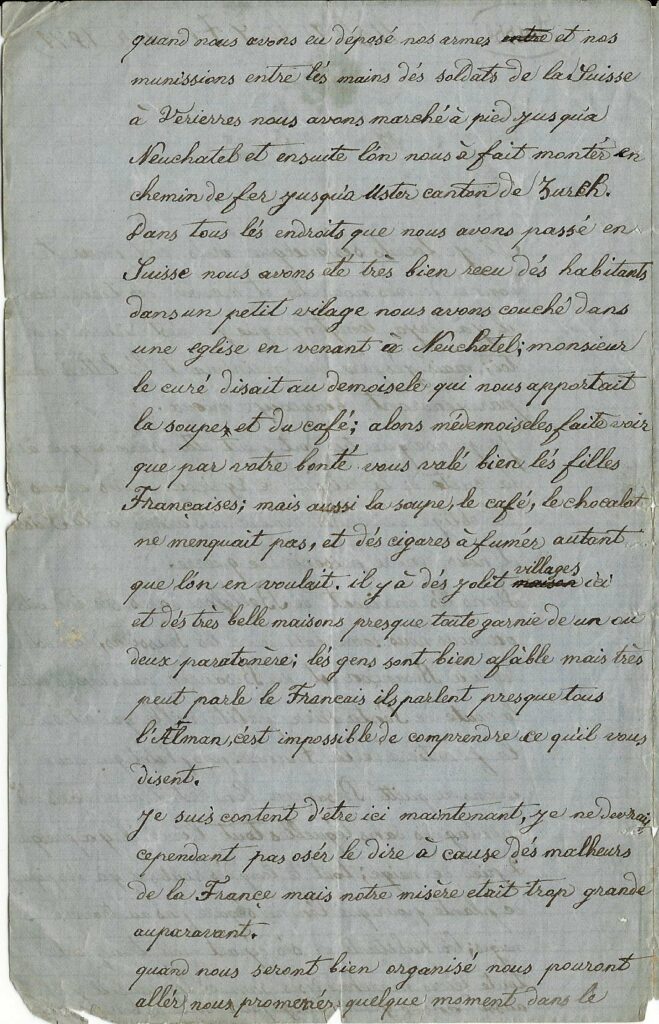 quand nous avons eu déposé nos armes entre et nos
munissions entre lés mains dés soldats de la Suisse
à Verierres nous avons marché à pied jusqu'a
Neuchatel et ensuite l'ón nous à fait montér en
chemin de fer jusqu'a Uster canton de Zurch.
Dans tous lés endroits que nous avons passé en
Suisse nous avons ete très bien recu dés habitants
dans un petit vilage nous avons couché dans
une eglise en venant a Neuchatel; monsieur
le curé disait au demoisele qui nous apportait
la soupe et du café; alons médemoiseles faite voir
que par votre bonté vous valé bien lés filles
Francaises; mais aussi la soupe, le café, le chocalat
ne menquait pas, et dés cigares à fumér autant
que l'ón en voulait. il y à dés jolit villages
maison ici
et dés très belle maisons presque toute garnie de un ou
deux paratonère; lés gens sont bien afàble mais très
peut parle le Francais ils parlent presque tous
l'Alman, c'est impossible de comprendre ce qu'il vous
disent.
Je suis content d'étre ici maintenant, je ne devrai
cependant pas osér le dire à cause dés malheurs
de la France mais notre misère etait trop grande
auparavant.
quand nous seront bien organisé nous pouront
allér nous promenér quelque moment dans le